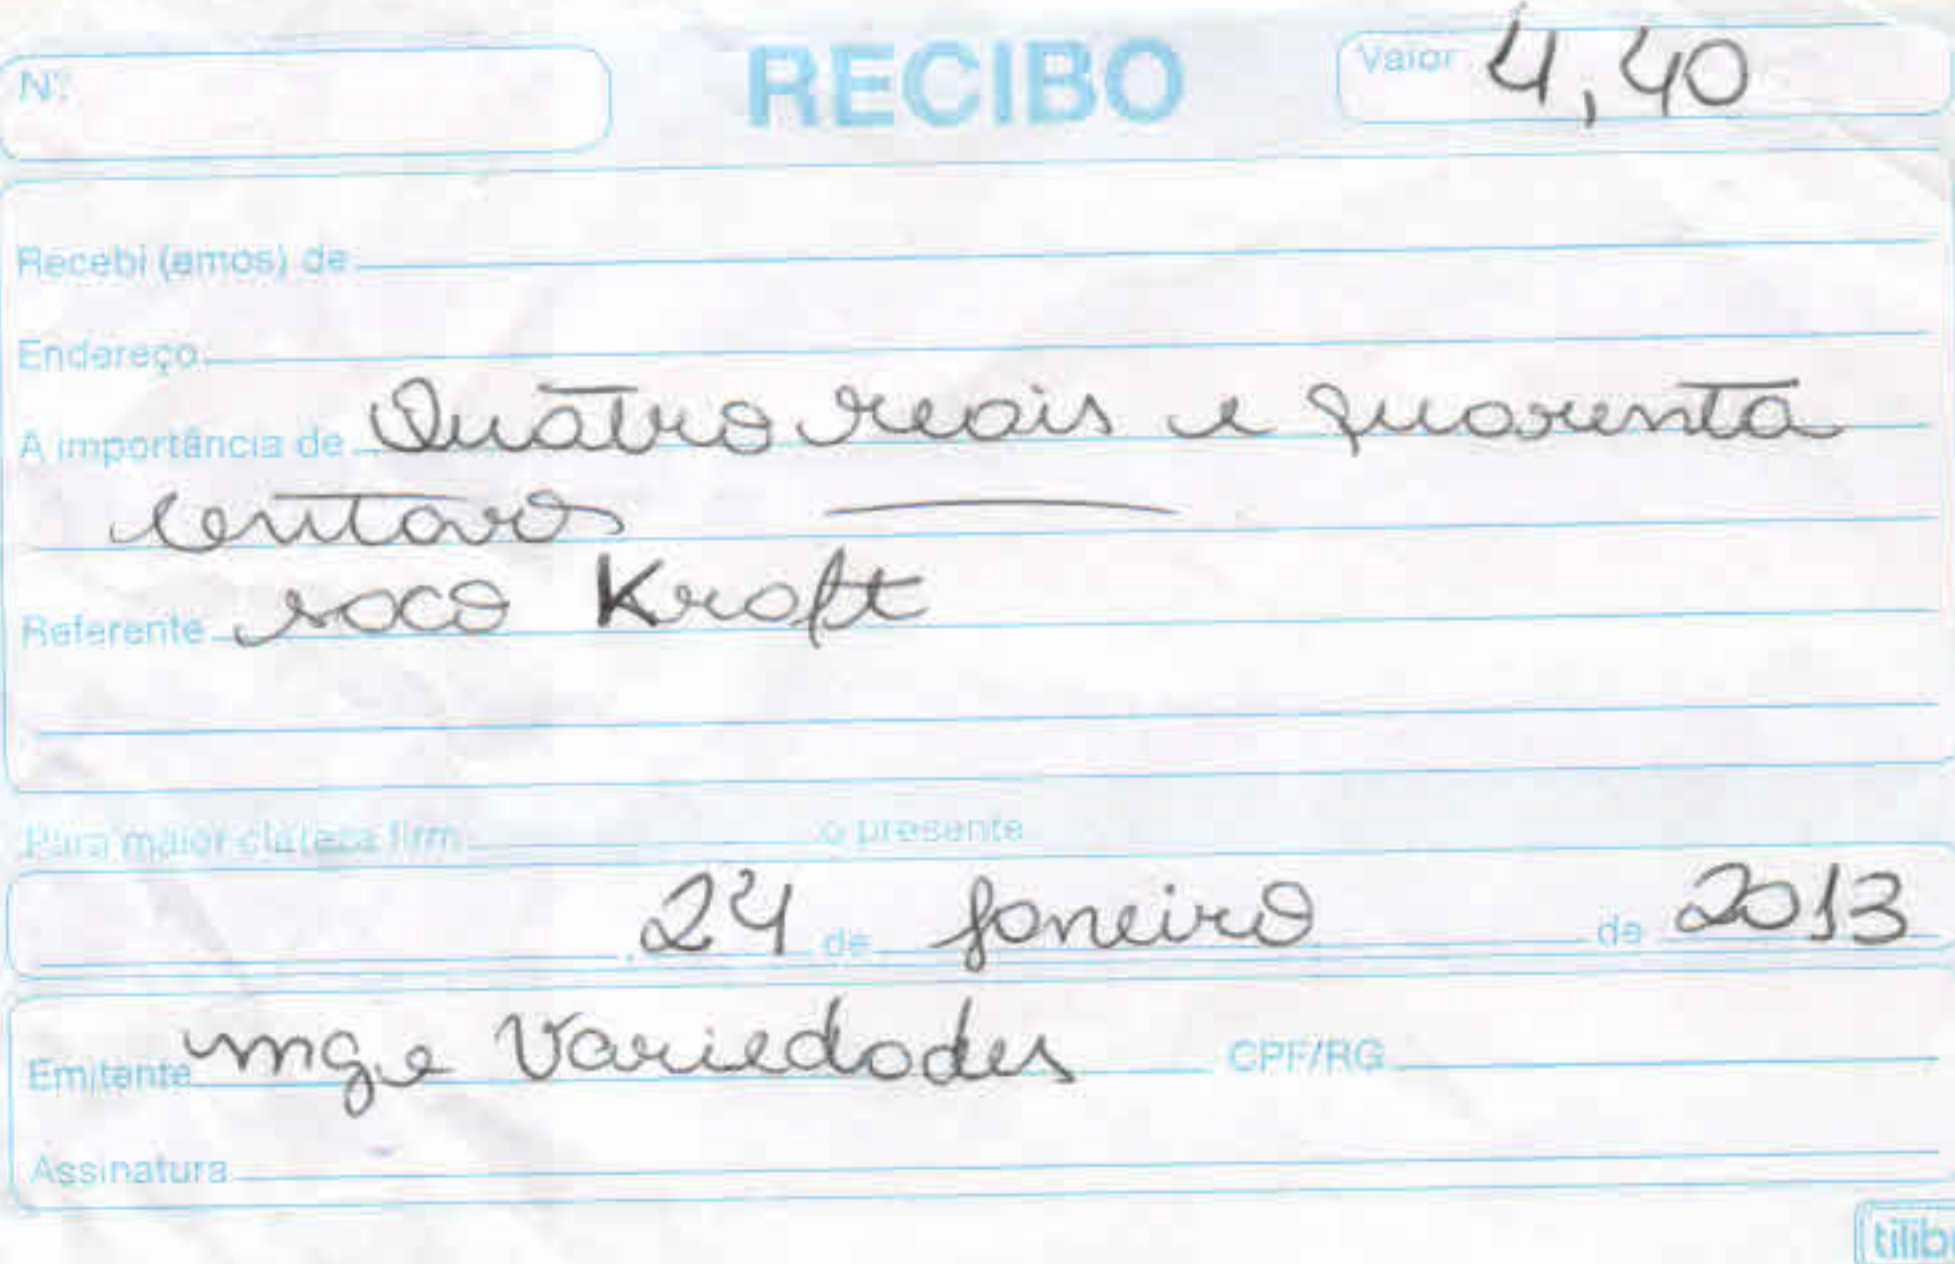 Nº
RECIBO
Valor 4,40
Recebi (emos) de
Endereço
A importância de Quatro reais e quarenta
centavos
Referente saco Kraft
Para maior clareza firm o presente
24 de Janeiro de 2013
Emitente mg e Variedades CPF/RG
Assinatura
tilib